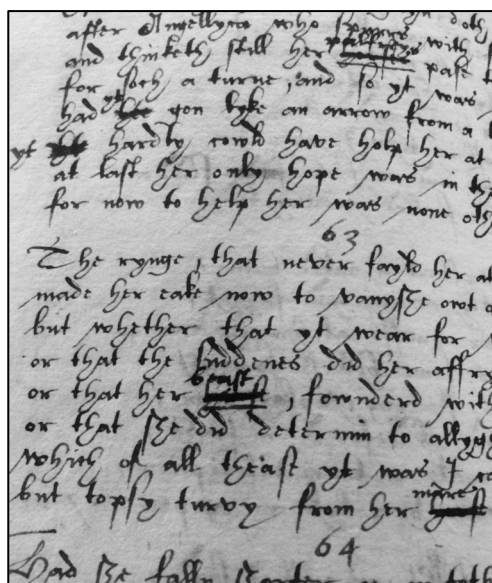 doth
after Angellyca who spurrs with
and thinketh still her palfreys pase
for soch a turne, and so yt was
had yt gon lyke an arrow from a
yt hardly cowld have holp her at
at last her only hope was in th
for now to help her was none oth
63
The rynge, that never fayld her at
made her eake now to vanyshe owt
but whether that yt wear for
or that the suddenes did her affry
or that her beast, fownderd with
or that she did determin to allyg
which of all thease yt was I
but topsy turvy from her mare
64
Had she